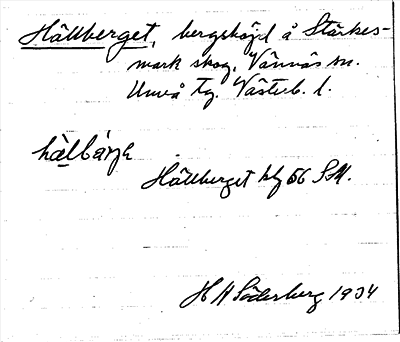 Hällberget, bergshöjd å Stärkes-
mark skog, Vännäs sn.
Umeå tg. Västerb. l.
hälbärjə
Hällberget kbl 56 S.M.
H A Söderberg 1934